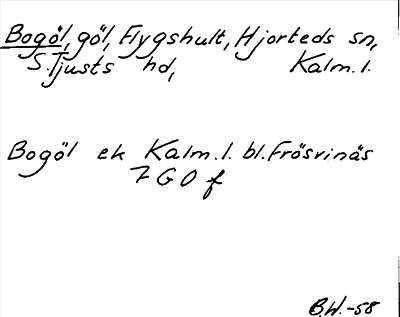 Bogöl, göl, Flygshult, Hjorteds sn,
S. Tjusts hd, Kalm. l.
Bogöl ek Kalm. l. bl. Frösvinäs
7 G O f
B.W.-58